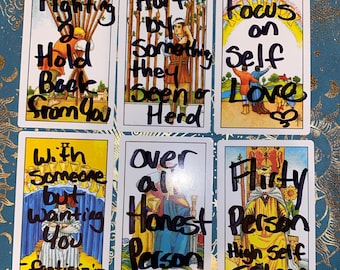 Fighting
2
Hold
Back
From You
Hurt
by
Something
they
Seen or
Herd
Focus
on
Self
Love
With
Someone
but
Wanting
You
over
all
Honest
Person
Flirty
Person
High Self